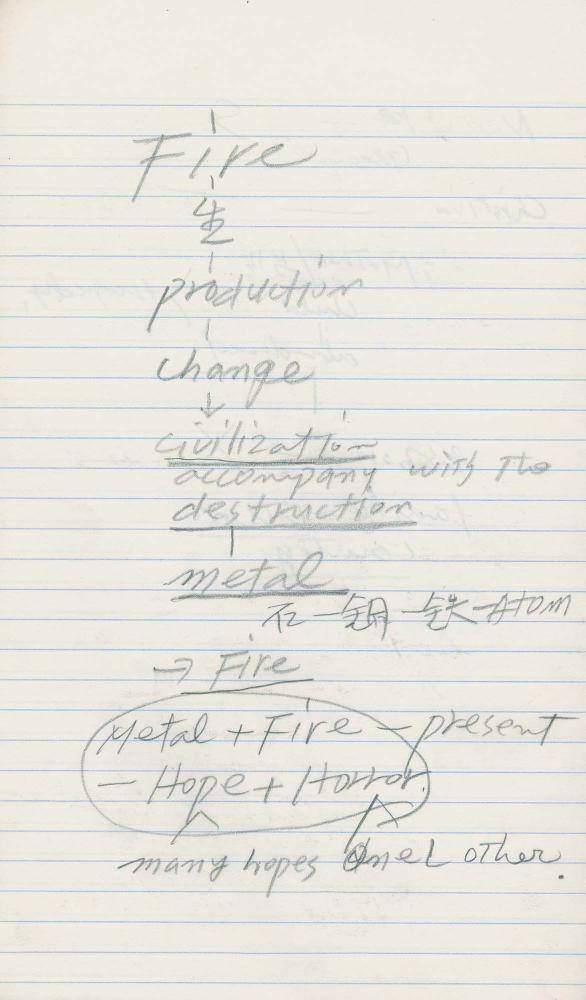 Fire
生
production
change
civilization
accompany with the
destruction
metal
石 - 銅 - 鉄 - Atom
→ Fire
Metal + Fire - present
- Hope + Horror.
many hopes One other.